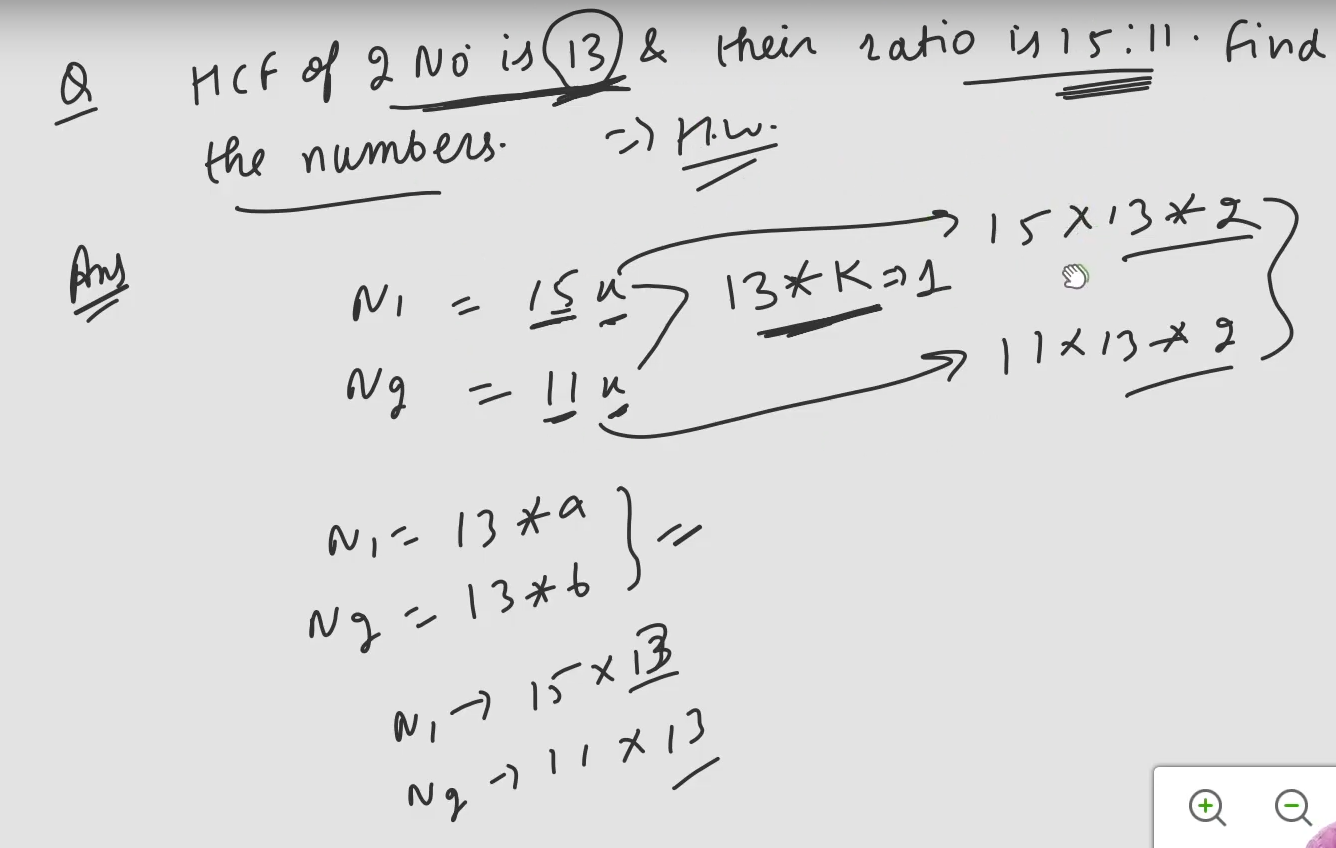 Q HCF of 2 No is 13 & their ratio is 15:11. Find
the numbers. => H.W.
Ans
N1 = 15x
N2 = 11x
13*K=>1
15×13*2
11×13*2
N1 = 13*a
N2 = 13*b
N1 → 15×13
N2 → 11×13